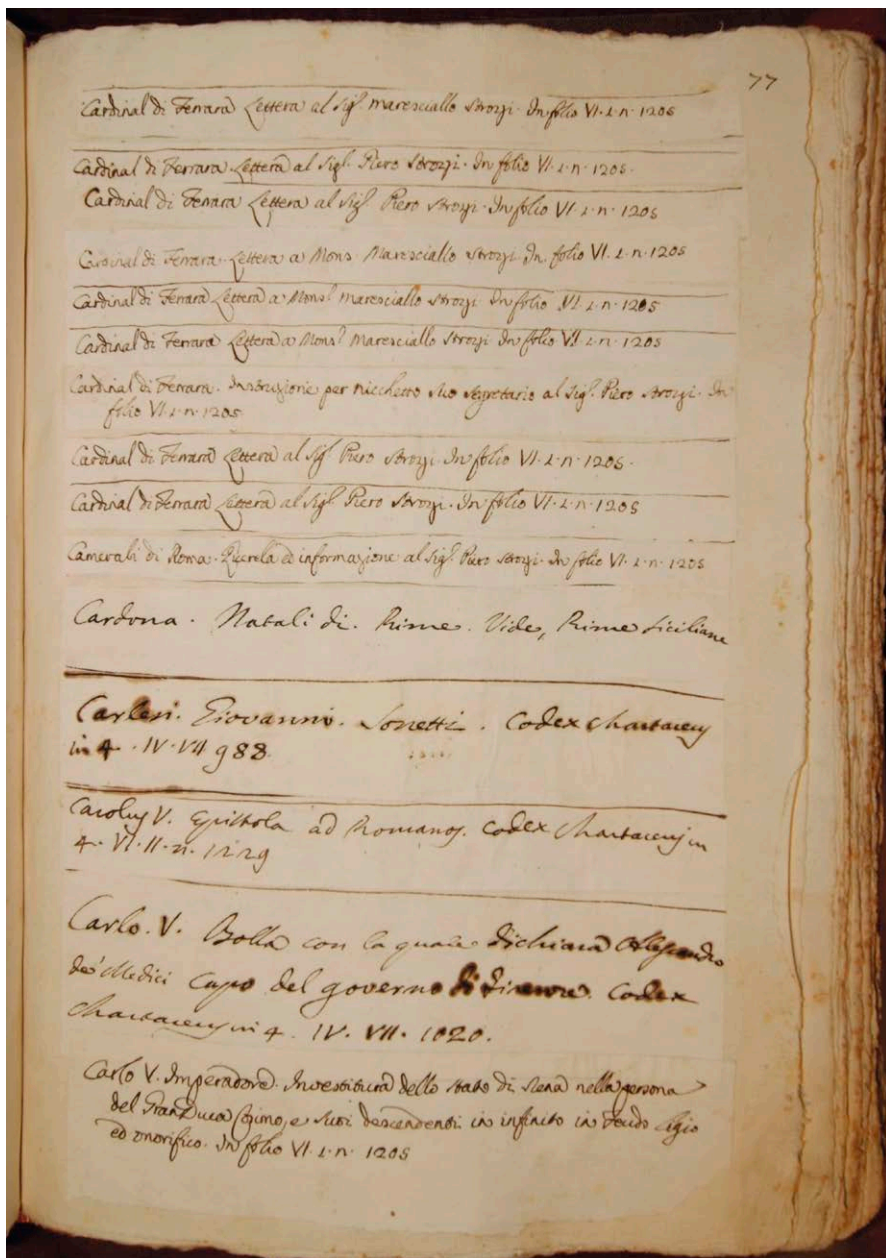 77
Cardinal di Ferrara Lettera al Sig.r Maresciallo Strozzi. In folio VI. 2. n. 1205
Cardinal di Ferrara. Lettera al Sig.r Piero Strozzi. In folio VI. 2. n. 1205.
Cardinal di Ferrara Lettera al Sig.r Piero Strozzi. In folio VI. 2. n. 1205
Cardinal di Ferrara. Lettera a Mons. Maresciallo Strozzi. In folio VI. 2. n. 1205
Cardinal di Ferrara Lettera a Mons.r Maresciallo Strozzi. In folio VI. 2. n. 1205
Cardinal di Ferrara Lettera a Mons.r Maresciallo Strozzi In folio VI. 2. n. 1205
Cardinal di Ferrara. Instruzione per Nicchetto suo Segretario al Sig.r Piero Strozzi. In
folio VI. 2. n. 1205
Cardinal di Ferrara Lettera al Sig.r Piero Strozzi. In folio VI. 2. n. 1205.
Cardinal di Ferrara Lettera al Sig.r Piero Strozzi. In folio VI. 2. n. 1205
Camerali di Roma. Querela ed informazione al Sig.r Piero Strozzi. In folio VI. 2. n. 1205
Cardona. Natali di. Rime. Vide, Rime Siciliane
Carlesi. Giovanni. Sonetti. Codex chartaceus
in 4. IV. VII 988
Carolus V. Epistola ad Romanos. Codex chartaceus in
4. VI. II. n. 1229
Carlo. V. Bolla con la quale dichiara Alessandro
de' Medici Capo del governo di Firenze. Codex
chartaceus in 4. IV. VII. 1020.
Carlo V. Imperadore. Investitura dello Stato di Siena nella persona
del Gran Duca Cosimo, e suoi descendenti in infinito in Feudo ligio
ed onorifico. In folio VI. 2. n. 1205